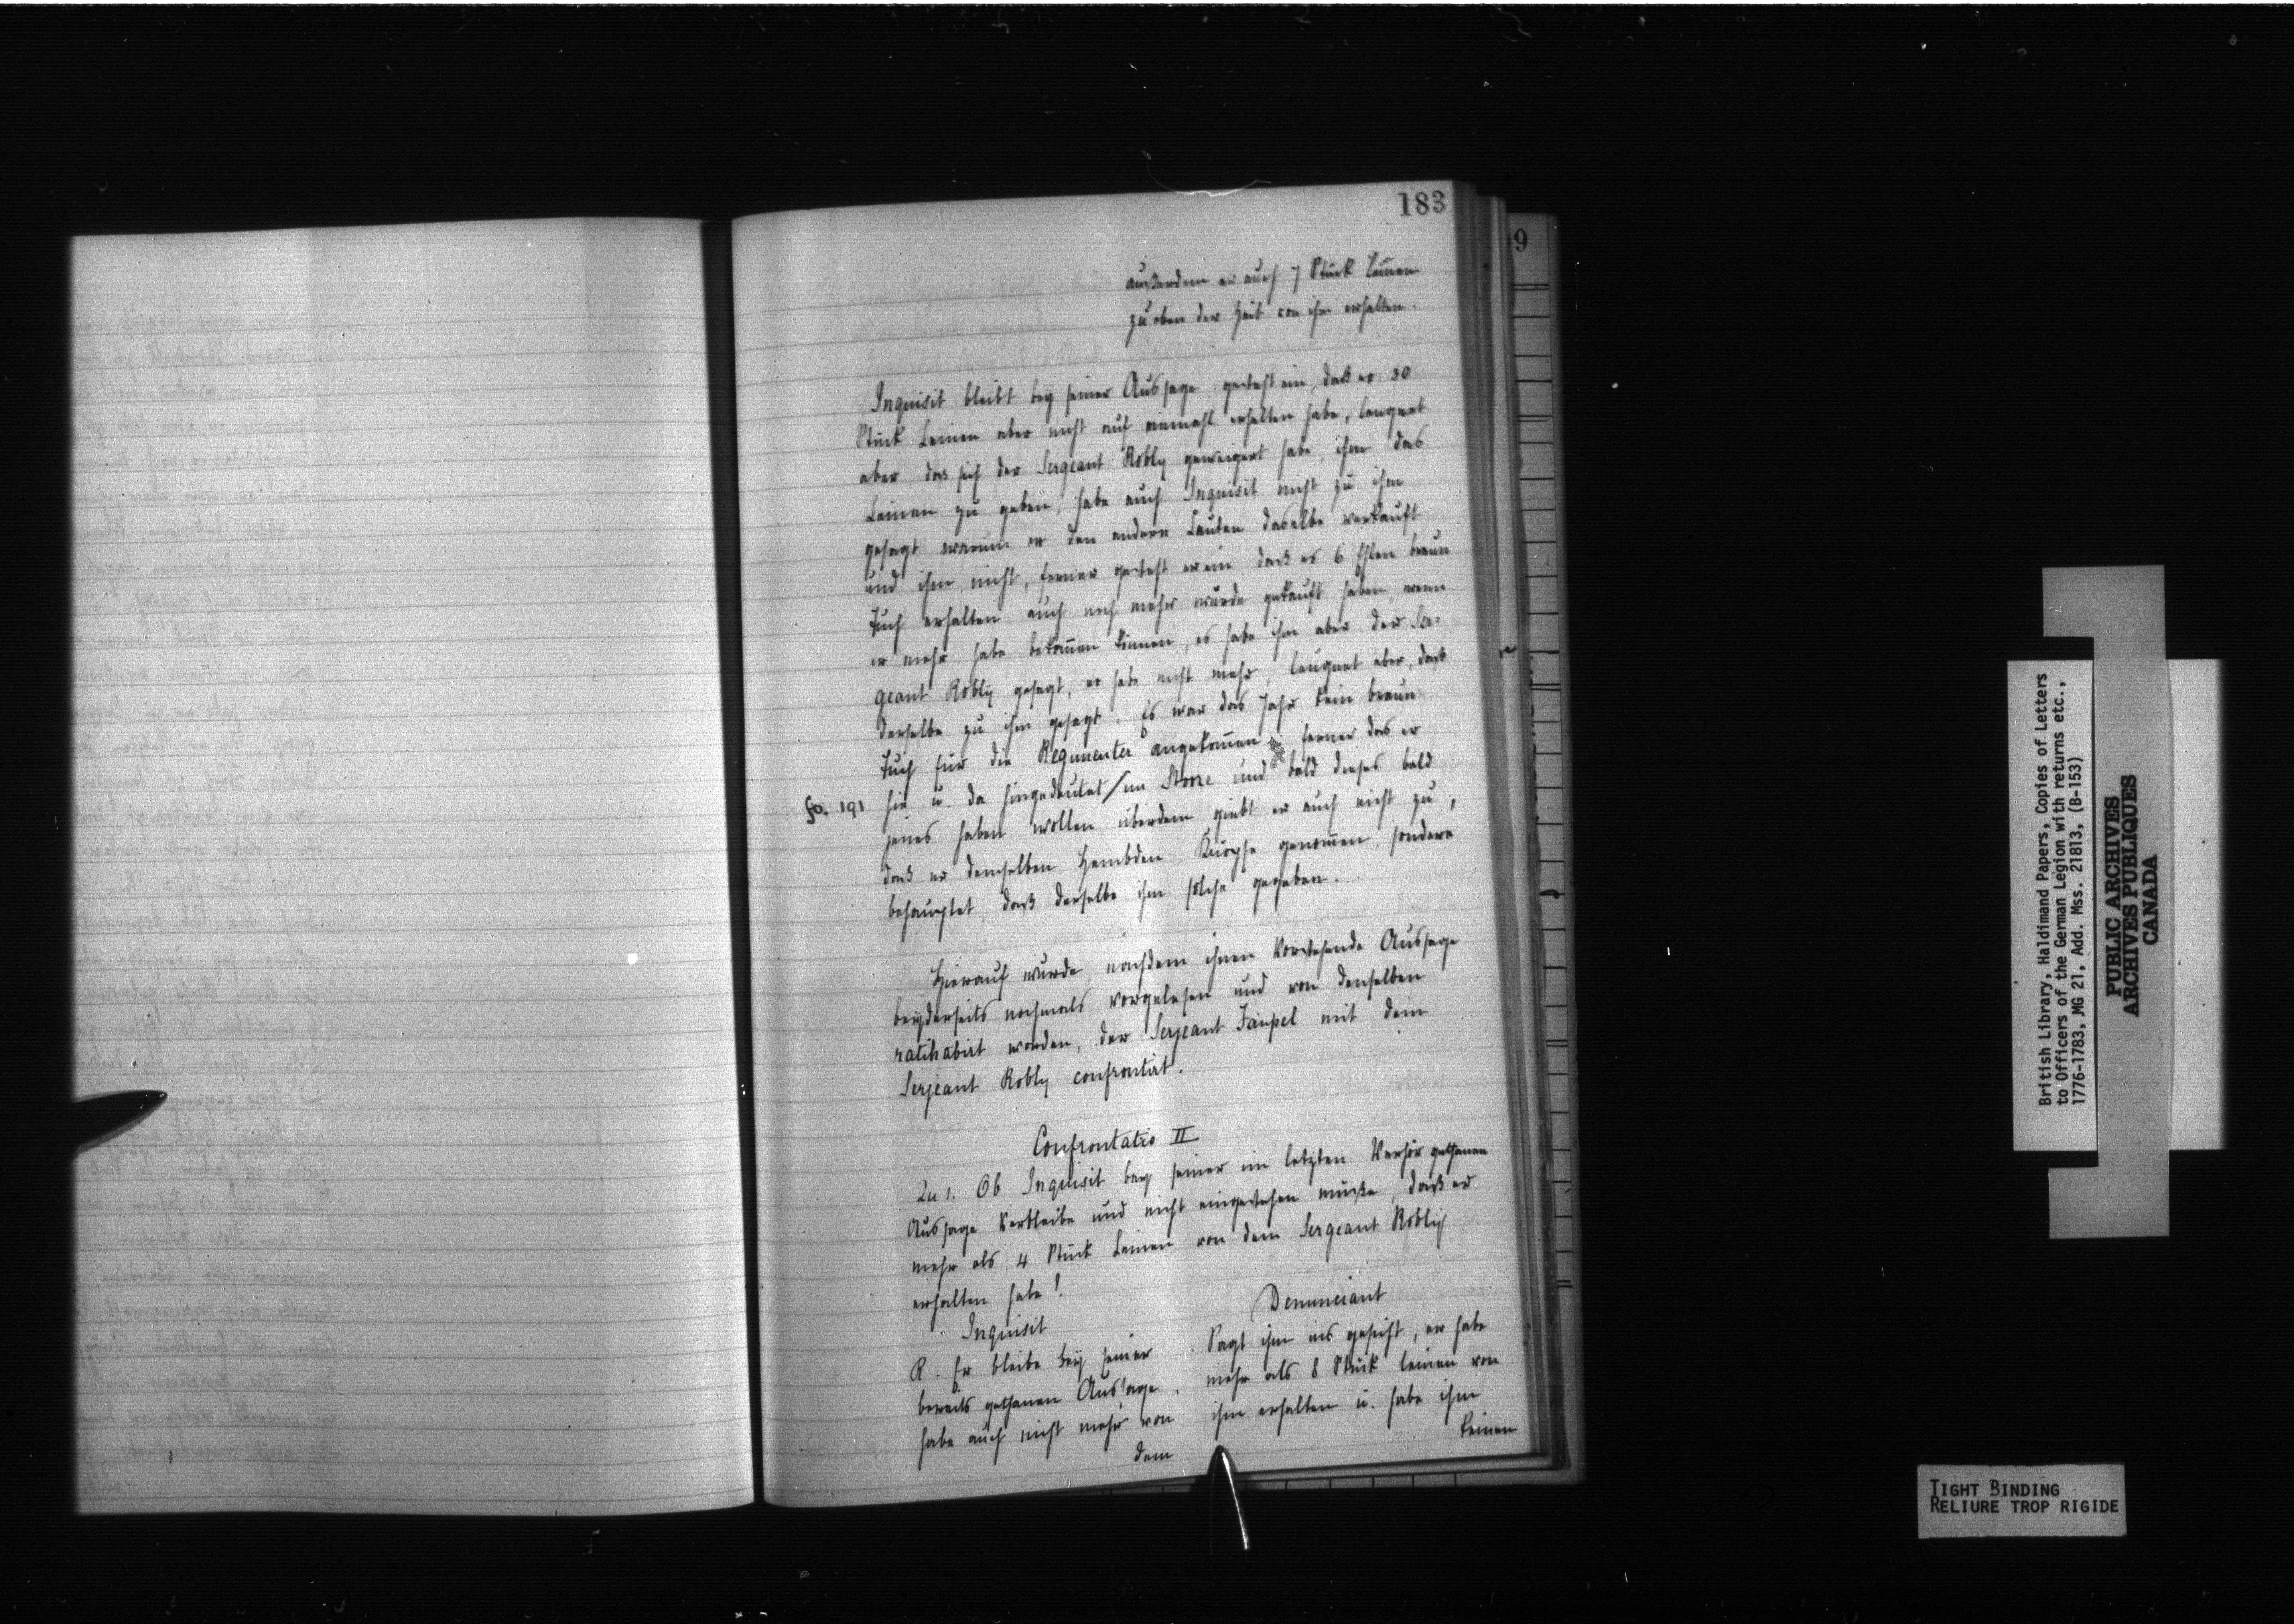 183
außerdem er auch 7 Stück Leinen
zu eben der Zeit von ihm erhalten.
Inquisit bleibt bey seiner Aussage gesteht ein, daß er 30
Stück Leinen aber nicht auf einmahl erhalten habe, leugnet
aber das sich der Sergeant Robly geweigert habe, ihm das
Leinen zu geben, habe auch Inquisit nicht zu ihm
gesagt warum er den andern Leuten daselbe verkauft
und ihm nicht, ferner gesteht er ein daß er 6 Ehlen braun
Tuch erhalten auch noch mehr würde gekauft haben, wenn
er mehr habe bekom̄en können, es habe ihm aber der Ser-
geant Robly gesagt, er habe nicht mehr, leugnet aber, daß
derselbe zu ihm gesagt. Es war das Jahr kein braun
Tuch für die Regimenter angekom̄en, ferner das er
fo. 191 hie u. da hingedeutet/im Stoore und bald dieses bald
jenes haben wollen überdem giebt er auch nicht zu,
daß er demselben Hembden Knöpfe genom̄en, sondern
behauptet, daß derselbe ihm solche gegeben.
Hierauf wurde, nachdem ihnen vorstehende Aussage
beyderseits nochmals vorgelesen und von denselben
ratihabirt worden, der Serjeant Faupel mit dem
Serjeant Robly confrontirt.
Confrontatio II
Qu 1. Ob Inquisit bey seiner im letzten Verhör gethanen
Aussage verbleibe und nicht eingestehen müße, daß er
mehr als 4 Stück Leinen von dem Sergeant Robly
erhalten habe!
Inquisit
R. Er bleibe bey seiner
bereits gethanen Aussage,
habe auch nicht mehr von
dem
Denunciant
Sagt ihm ins gesicht, er habe
mehr als 8 Stück leinen von
ihm erhalten u. habe ihm
keinen
9
British Library, Haldimand Papers, Copies of Letters
to Officers of the German Legion with returns etc.,
1776-1783, MG 21, Add. Mss. 21813, (B-153)
PUBLIC ARCHIVES
ARCHIVES PUBLIQUES
CANADA
TIGHT BINDING
RELIURE TROP RIGIDE